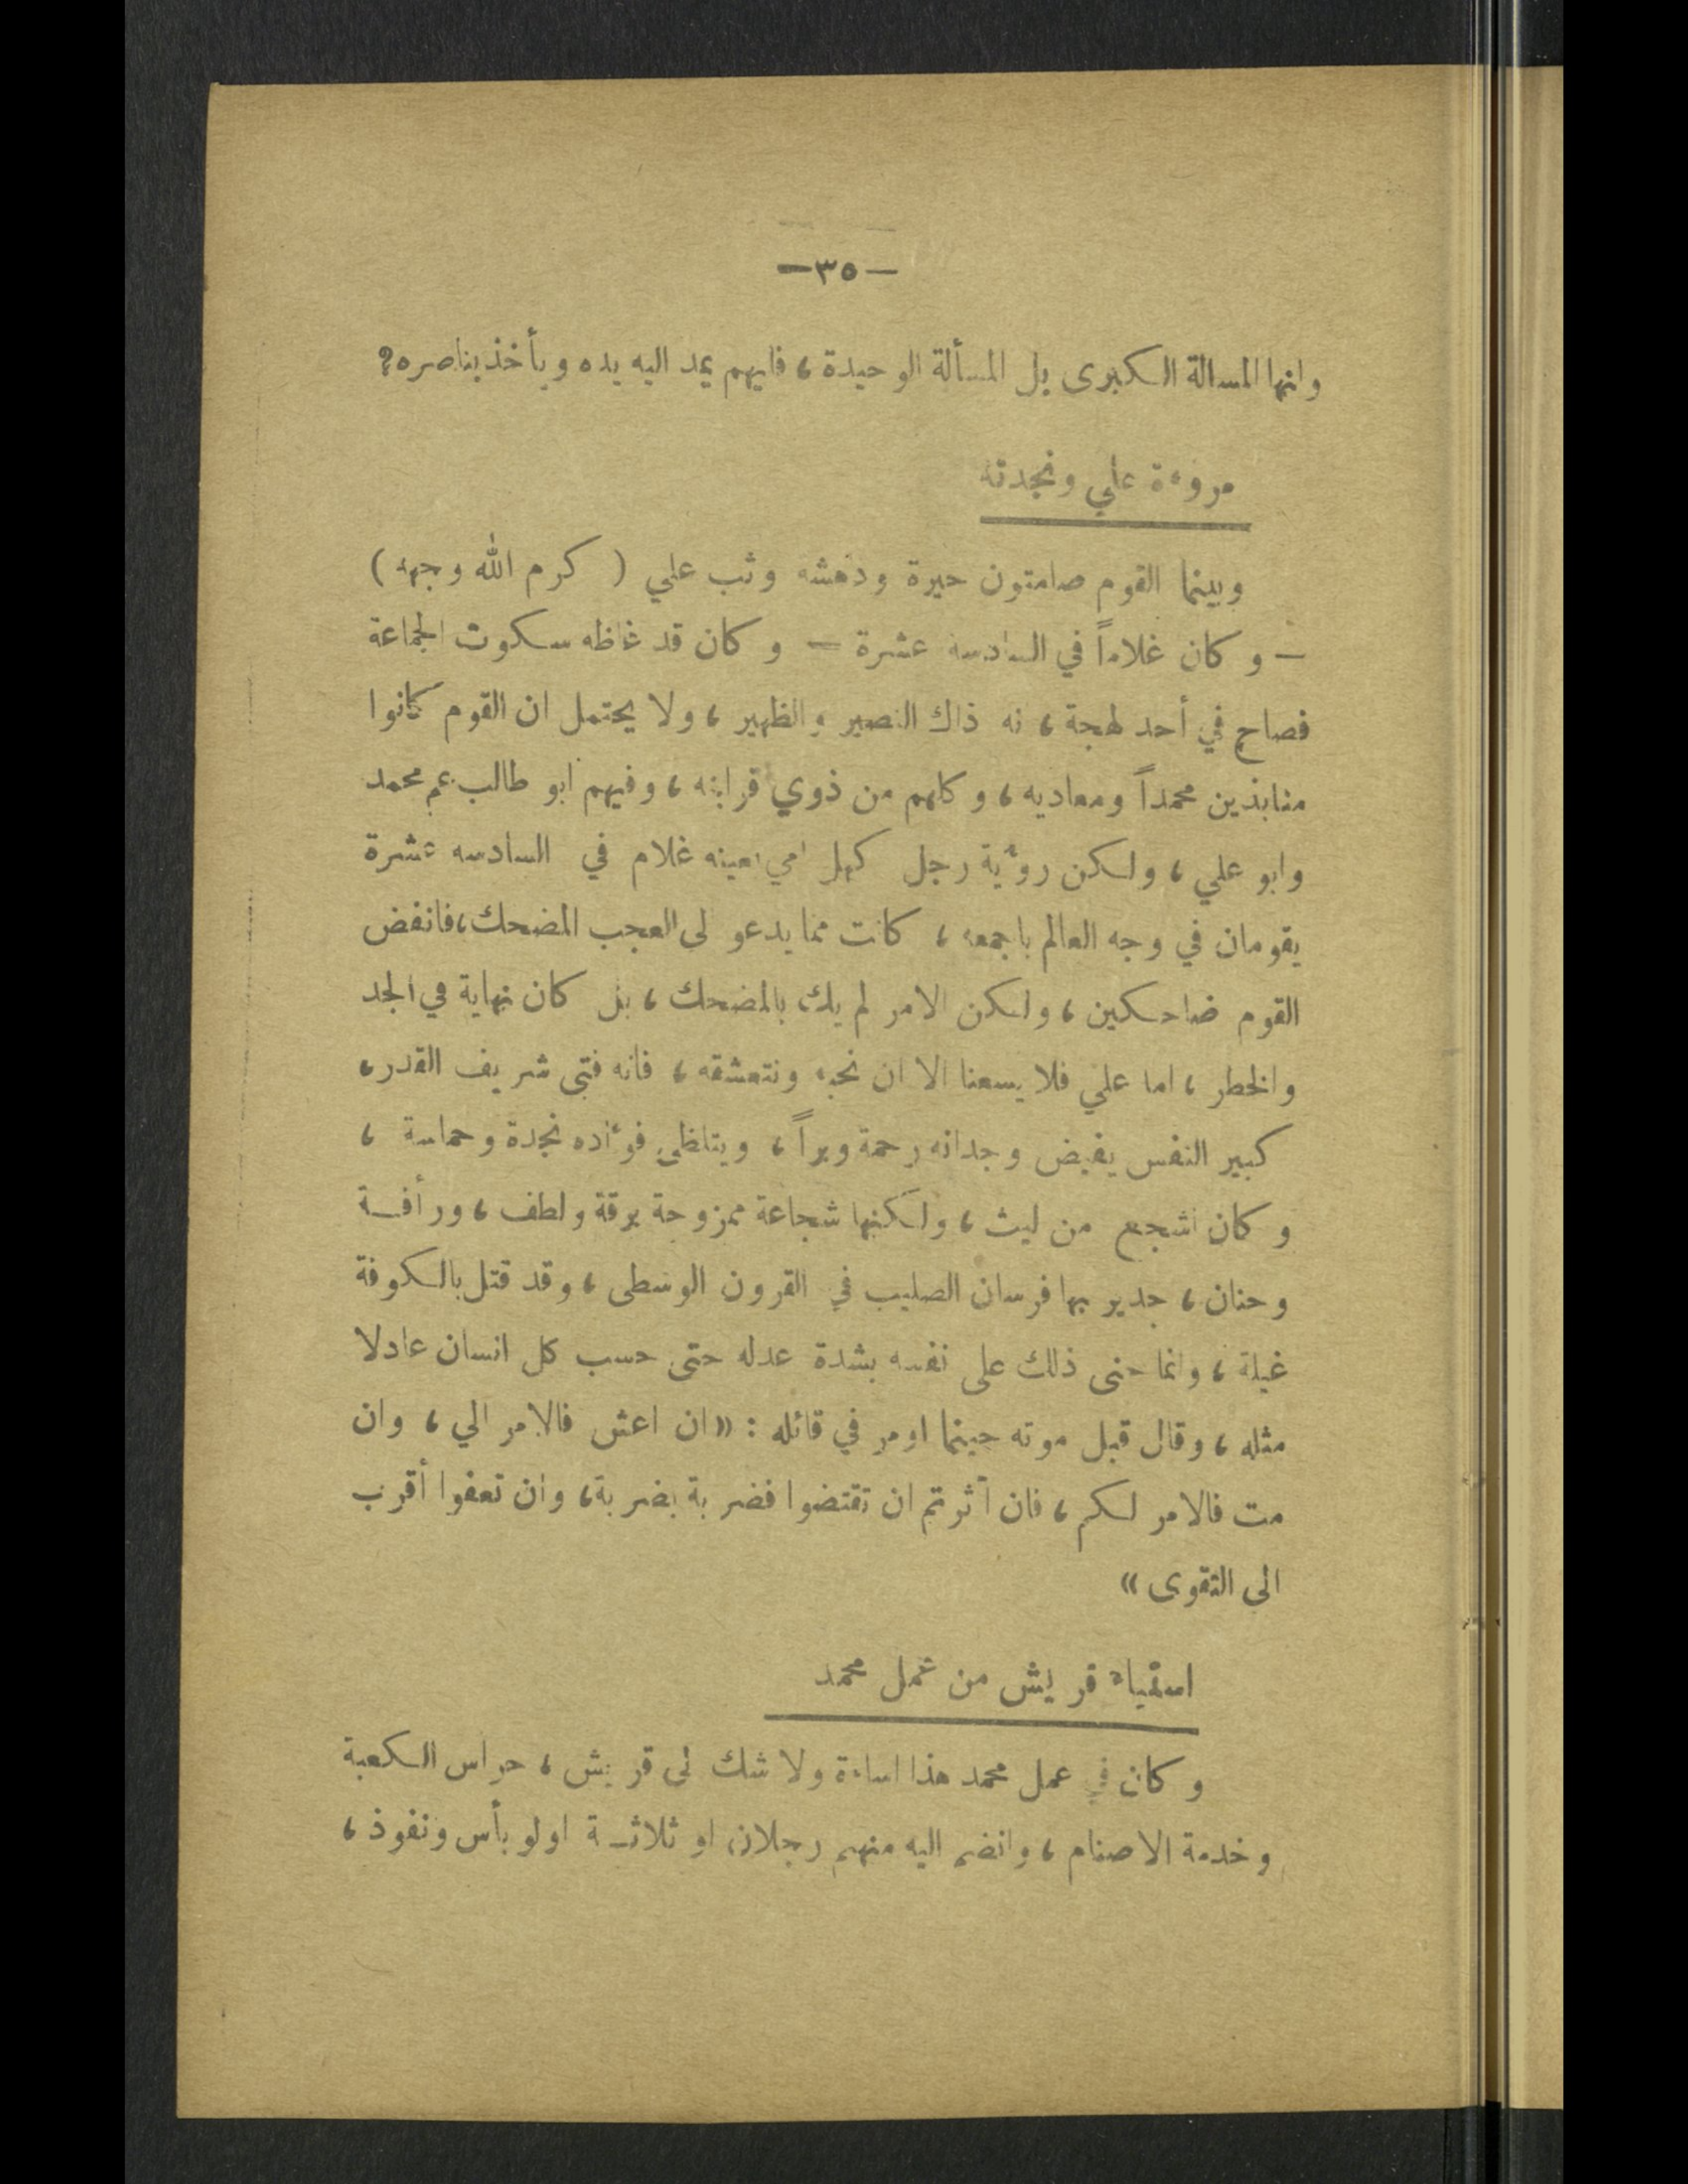 —٣٥—
وانها المسالة الكبرى بل المسألة الوحيدة، فايهم يمد اليه يده ويأخذ بناصره؟
مروءة علي ونجدته
وبينما القوم صامتون حيرة ودهشه وثب علي ( كرم الله وجهه )
— وكان غلاماً في السادسة عشرة — وكان قد غاظه سكوت الجماعة
فصاح في أحد لهجة، نه ذاك النصير والظهير، ولا يحتمل ان القوم كانوا
منابذين محمداً ومعاديه، وكلهم من ذوي قرابته، وفيهم ابو طالب عم محمد
وابو علي، ولكن رؤية رجل كهل امي يعينه غلام في السادسه عشرة
يقومان في وجه العالم باجمعه، كانت مما يدعو لى العجب المضحك، فانفض
القوم ضاحكين، ولكن الامر لم يك بالمضحك، بل كان نهاية في الجد
والخطر، اما علي فلا يسعنا الا ان نحبه ونتعشقه، فانه فتى شريف القدر،
كبير النفس يفيض وجدانه رحمة وبراً، ويتلظى فؤاده نجدة وحماسة،
وكان اشجع من ليث، ولكنها شجاعة ممزوجة برقة ولطف، ورأفة
وحنان، جدير بها فرسان الصليب في القرون الوسطى، وقد قتل بالكوفة
غيلة، وانما جنى ذلك على نفسه بشدة عدله حتى حسب كل انسان عادلا
مثله، وقال قبل موته حينما اومر في قاتله : «ان اعش فالامر الي، وان
مت فالامر لكم، فان آثرتم ان تقتضوا فضربة بضربة، وان تعفوا أقرب
الى التقوى»
استياء قريش من عمل محمد
وكان في عمل محمد هذا اساءة ولا شك لى قريش، حراس الكعبة
وخدمة الاصنام، وانضم اليه منهم رجلان او ثلاثة اولو بأس ونفوذ،